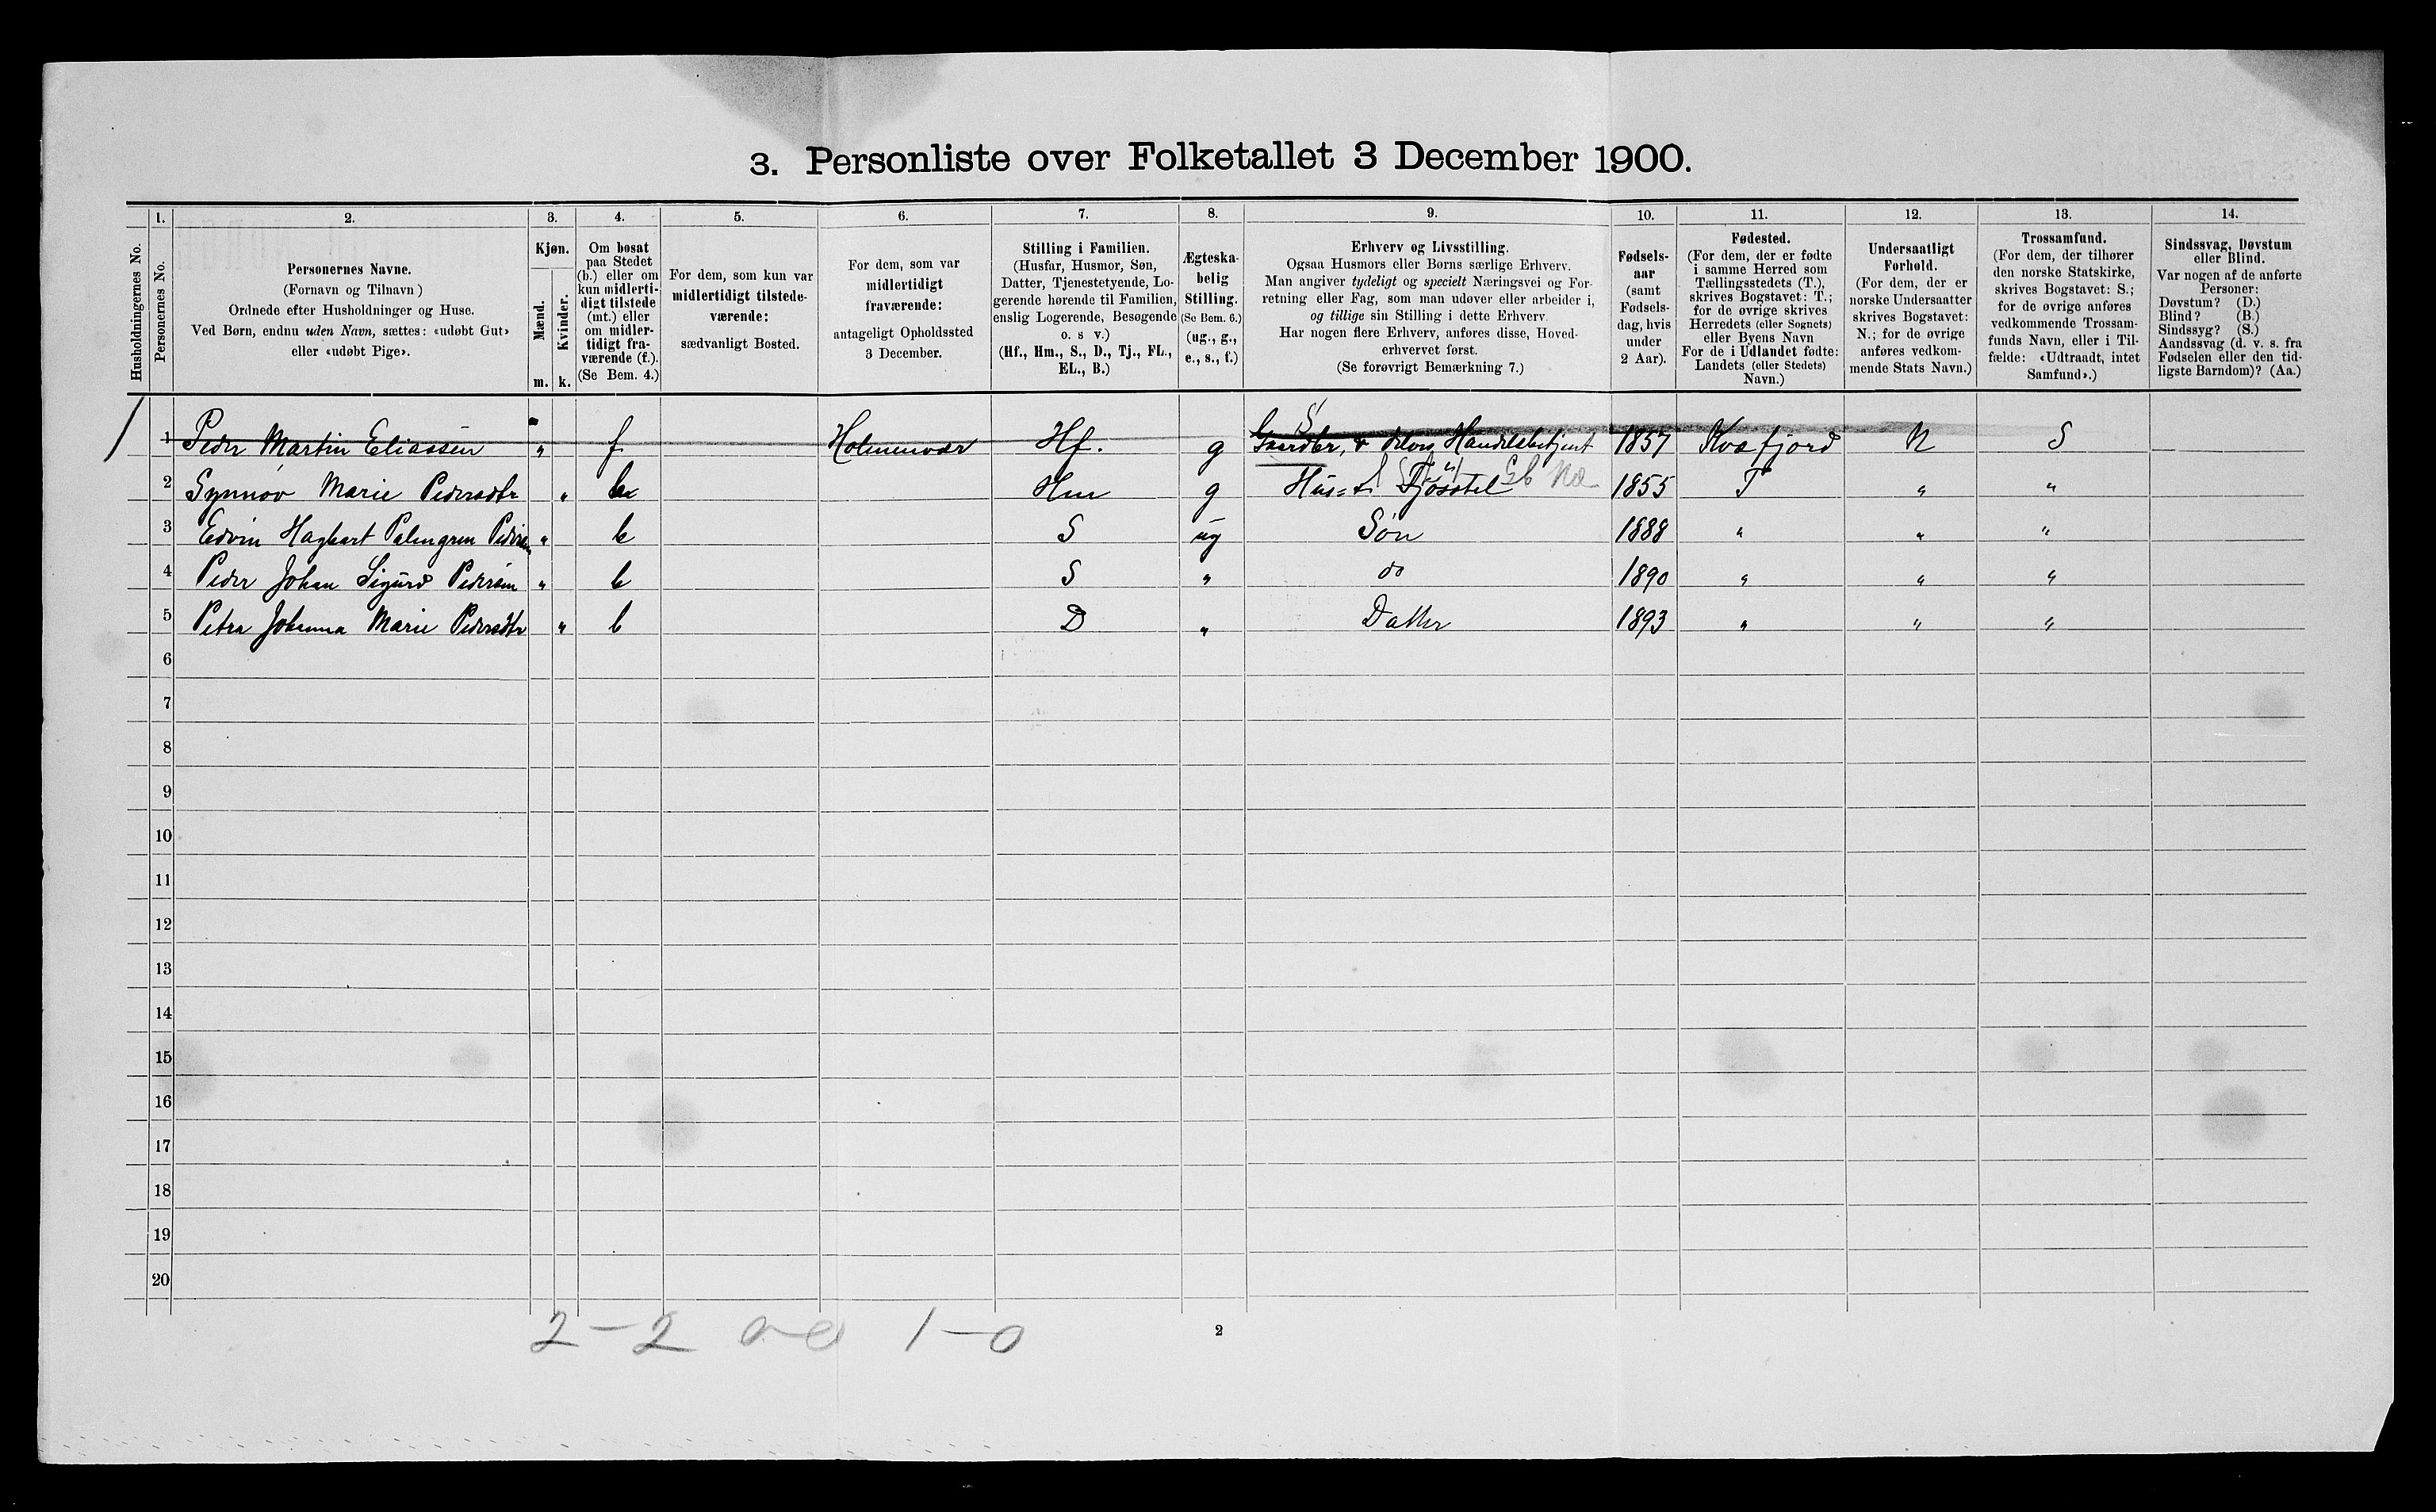 3. Personliste over Folketallet 3 December 1900.
1. 2. 3. 4. 5. 6. 7. 8. 9. 10. 11. 12. 13. 14.
Husholdningernes No.
Personernes No.
Personernes Navne.
(Fornavn og Tilnavn)
Ordnede efter Husholdninger og Huse.
Ved Børn, endnu uden Navn, sættes: «udøbt Gut»
eller «udøbt Pige».
Kjøn.
Mænd.
Kvinder.
m. k.
Om bosat
paa Stedet
(b.) eller om
kun midlerti-
digt tilstede
(mt.) eller
om midler-
tidigt fra-
værende (f.).
(Se Bem. 4.)
For dem, som kun var
midlertidigt tilstede-
værende:
sædvanligt Bosted.
For dem, som var
midlertidigt
fraværende:
antageligt Opholdssted
3 December.
Stilling i Familien.
(Husfar, Husmor, Søn,
Datter, Tjenestetyende, Lo-
gerende hørende til Familien,
enslig Logerende, Besøgende
o. s v.)
(Hf., Hm., S., D., Tj., FL.,
EL., B.)
Ægteska-
belig
Stilling.
(Se Bem. 6.)
(ug., g.,
e., s., f.)
Erhverv og Livsstilling.
Ogsaa Husmors eller Børns særlige Erhverv.
Man angiver tydeligt og specielt Næringsvei og For-
retning eller Fag, som man udøver eller arbeider i,
og tillige sin Stilling i dette Erhverv.
Har nogen flere Erhverv, anføres disse, Hoved-
erhvervet først.
(Se forøvrigt Bemærkning 7.)
Fødsels-
aar
(samt
Fødsels-
dag, hvis
under
2 Aar).
Fødested.
(For dem, der er fødte
i samme Herred som
Tællingsstedets (T.),
skrives Bogstavet: T.;
for de øvrige skrives
Herredets (eller Sognets)
eller Byens Navn
For de i Udlandet fødte:
Landets (eller Stedets)
Navn.)
Undersaatligt
Forhold.
(For dem, der er
norske Undersaatter
skrives Bogstavet:
N.; for de øvrige
anføres vedkom-
mende Stats Navn.)
Trossamfund.
(For dem, der tilhører
den norske Statskirke,
skrives Bogstavet: S.;
for de øvrige anføres
vedkommende Trossam-
funds Navn, eller i Til-
fælde: «Udtraadt, intet
Samfund».)
Sindssvag, Døvstum
eller Blind.
Var nogen af de anførte
Personer:
Døvstum? (D.)
Blind? (B.)
Sindssyg? (S.)
Aandssvag (d. v. s. fra
Fødselen eller den tid-
ligste Barndom)? (Aa.)
1 Peder Martin Eliassen " f Holmenvær Hf. g Handelsbetjent 1857 Kvæfjord N S
2 Synnøv Marie Pedersdtr " b Hm g Hus= Fjøsstel 1855 T " "
3 Edvin Hagbart Palmgren Pedersen " b S ug Søn 1888 " " "
4 Peder Johan Sigurd Pedersen " b S " do 1890 " " "
5 Petra Johanna Marie Pedersdtr " b D " Datter 1893 " " "
6
7
8
9
10
11
12
13
14
15
16
17
18
19
20
2-2 1-0
2